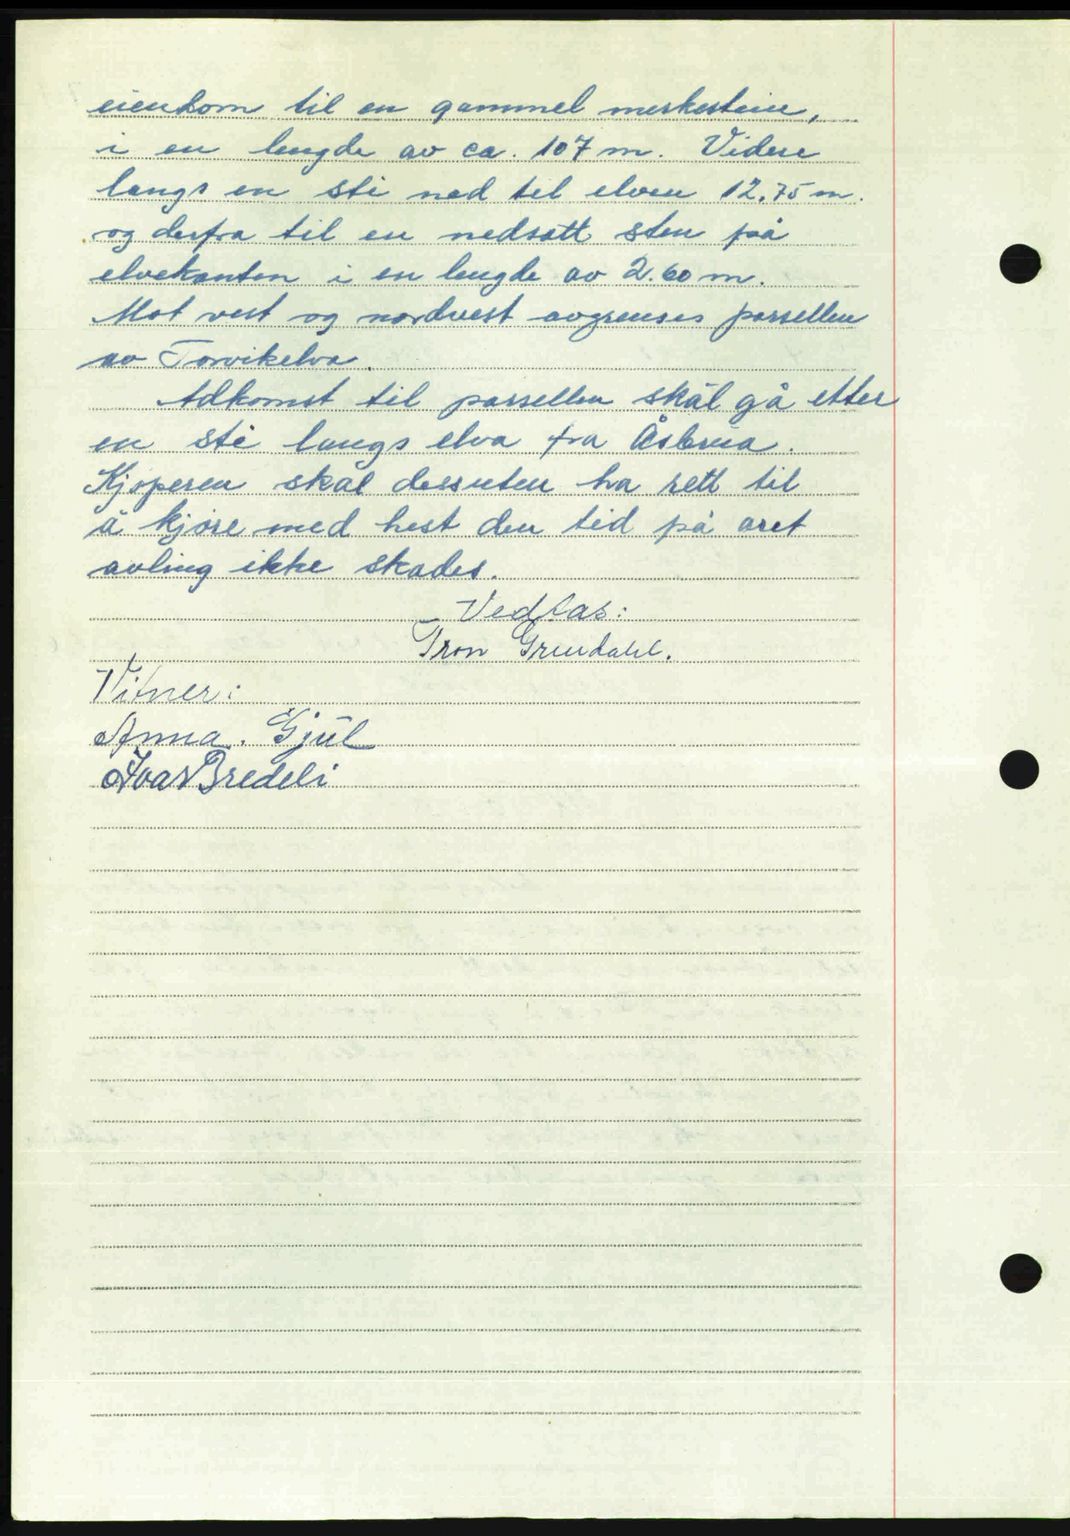 eiendom til en gammel merkestein,
i en lengde av ca. 107 m. Videre
langs en sti ned til elven 12.75 m.
og derfra til en nedsatt sten på
elvekanten i en lengde av 2.60 m.
Mot vest og nordvest avgrenses parsellen
av Torvikelva.
Adkomst til parsellen skal gå etter
en sti langs elva fra Åsbrua.
Kjøperen skal dessuten ha rett til
å kjøre med hest den tid på året
avling ikke skades.
Vedtas:
Tron Grundahl.
Vitner:
Anna. Gjul
Ivar Bredeli